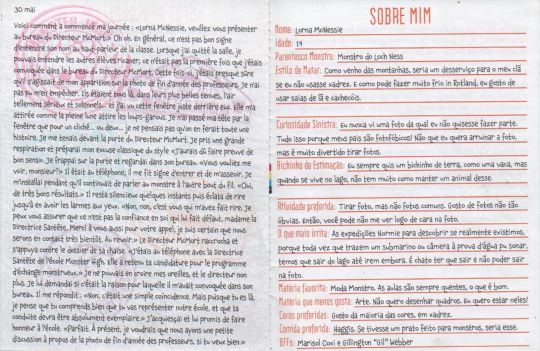 30 mai
Voici comment a commencé ma journée : «Lorna McNessie, veuillez vous présenter
au bureau du Directeur McMort.» Oh oh. En général, ce n'est pas bon signe
d'entendre son nom au haut-parleur de la classe. Lorsque j'ai quitté la salle, je
pouvais entendre les autres élèves ricaner, ce n'était pas la première fois que j'étais
convoquée dans le bureau du Directeur McMort. Cette fois-ci, j'étais presque sûre
qu'il s'agissait de mon apparition sur la photo de fin d'année des professeurs. Je n'ai
pas pu m'en empêcher. Ils étaient tous là, dans leurs plus belles tenues, l'air
tellement sérieux et solennels... et j'ai vu cette fenêtre juste derrière eux. Elle m'a
attirée comme la pleine lune attire les loups-garous. Je n'ai passé ma tête par la
fenêtre que pour un cliché... ou deux... je ne pensais pas qu'on en ferait toute une
histoire. Je me tenais devant la porte du Directeur McMort. Je pris une grande
respiration et préparai mon excuse classique du style «j'aurais dû faire preuve de
bon sens». Je frappai sur la porte et regardai dans son bureau. «Vous vouliez me
voir, monsieur?» Il était au téléphone; il me fit signe d'entrer et de m'asseoir. Je
m'installai pendant qu'il continuait de parler au monstre à l'autre bout du fil. «Oui,
de très bons résultats.» Il resta silencieux quelques instants puis éclata de rire
jusqu'à en avoir les larmes aux yeux. «Non, non, c'est vous qui m'avez fait rire. Je
peux vous assurer que ce n'est pas la confiance en soi qui lui fait défaut, madame la
Directrice Santête. Merci à vous aussi pour votre appel, je suis certain que nous
serons en contact très bientôt. Au revoir.» Le Directeur McMort raccrocha et
s'appuya contre le dossier de sa chaise. «J'étais au téléphone avec la Directrice
Santête de l'école Monster High. Elle a retenu ta candidature pour le programme
d'échange monstrueux.» Je ne pouvais en croire mes oreilles, et le directeur non
plus. Je lui demandai si c'était la raison pour laquelle il m'avait convoquée dans son
bureau. Il me répondit : «Non, c'était une simple coïncidence. Mais puisque tu es là,
je pense que tu comprends bien que tu vas représenter notre école, et que ta
conduite devra être absolument exemplaire.» J'acquiesçai et lui promis de faire
honneur à l'école. «Parfait. À présent, je voudrais que nous ayons une petite
discussion à propos de la photo de fin d'année des professeurs, si tu veux bien.»
SOBRE MIM
Nome: Lorna McNessie
Idade: 14
Parentesco Monstro: Monstro do Loch Ness
Estilo de Matar: Como venho das montanhas, seria um desserviço para o meu clã
se eu não usasse xadrez. E como pode fazer muito frio in Rotland, eu gosto de
usar saias de lã e cachecóis.
Curiosidade Sinistra: Eu nunca vi uma foto da qual eu não quisesse fazer parte.
Tudo isso porque meus pais são fotofóbicos! Não que eu queira arruinar a foto,
mas é muito divertido tirar fotos.
Bichinho de Estimação: Eu sempre quis um bichinho de terra, como uma vaca, mas
quando se vive no lago, não tem muito como manter um animal desse.
Atividade preferida: Tirar foto, mas não fotos comuns. Gosto de fotos não tão
óbvias. Então, você pode não me ver logo de cara na foto.
O que mais irrita: As expedições Normie para descobrir se realmente existimos,
porque toda vez que trazem um submarino ou câmera à prova d'água pu sonar,
temos que sair do lago até irem embora. É chato ter que sair e não poder sair
na foto.
Matéria favorita: Moda Monstro. As aulas são sempre quentes, o que é bom.
Matéria que menos gosta: Arte. Não quero desenhar quadros. Eu quero estar neles!
Cores preferidas: Gosto da maioria das cores, em xadrez.
Comida preferida: Haggis. Se tivesse um prato feito para monstros, seria esse.
BFFs: Marisol Coxi e Gillington "Gil" Webber